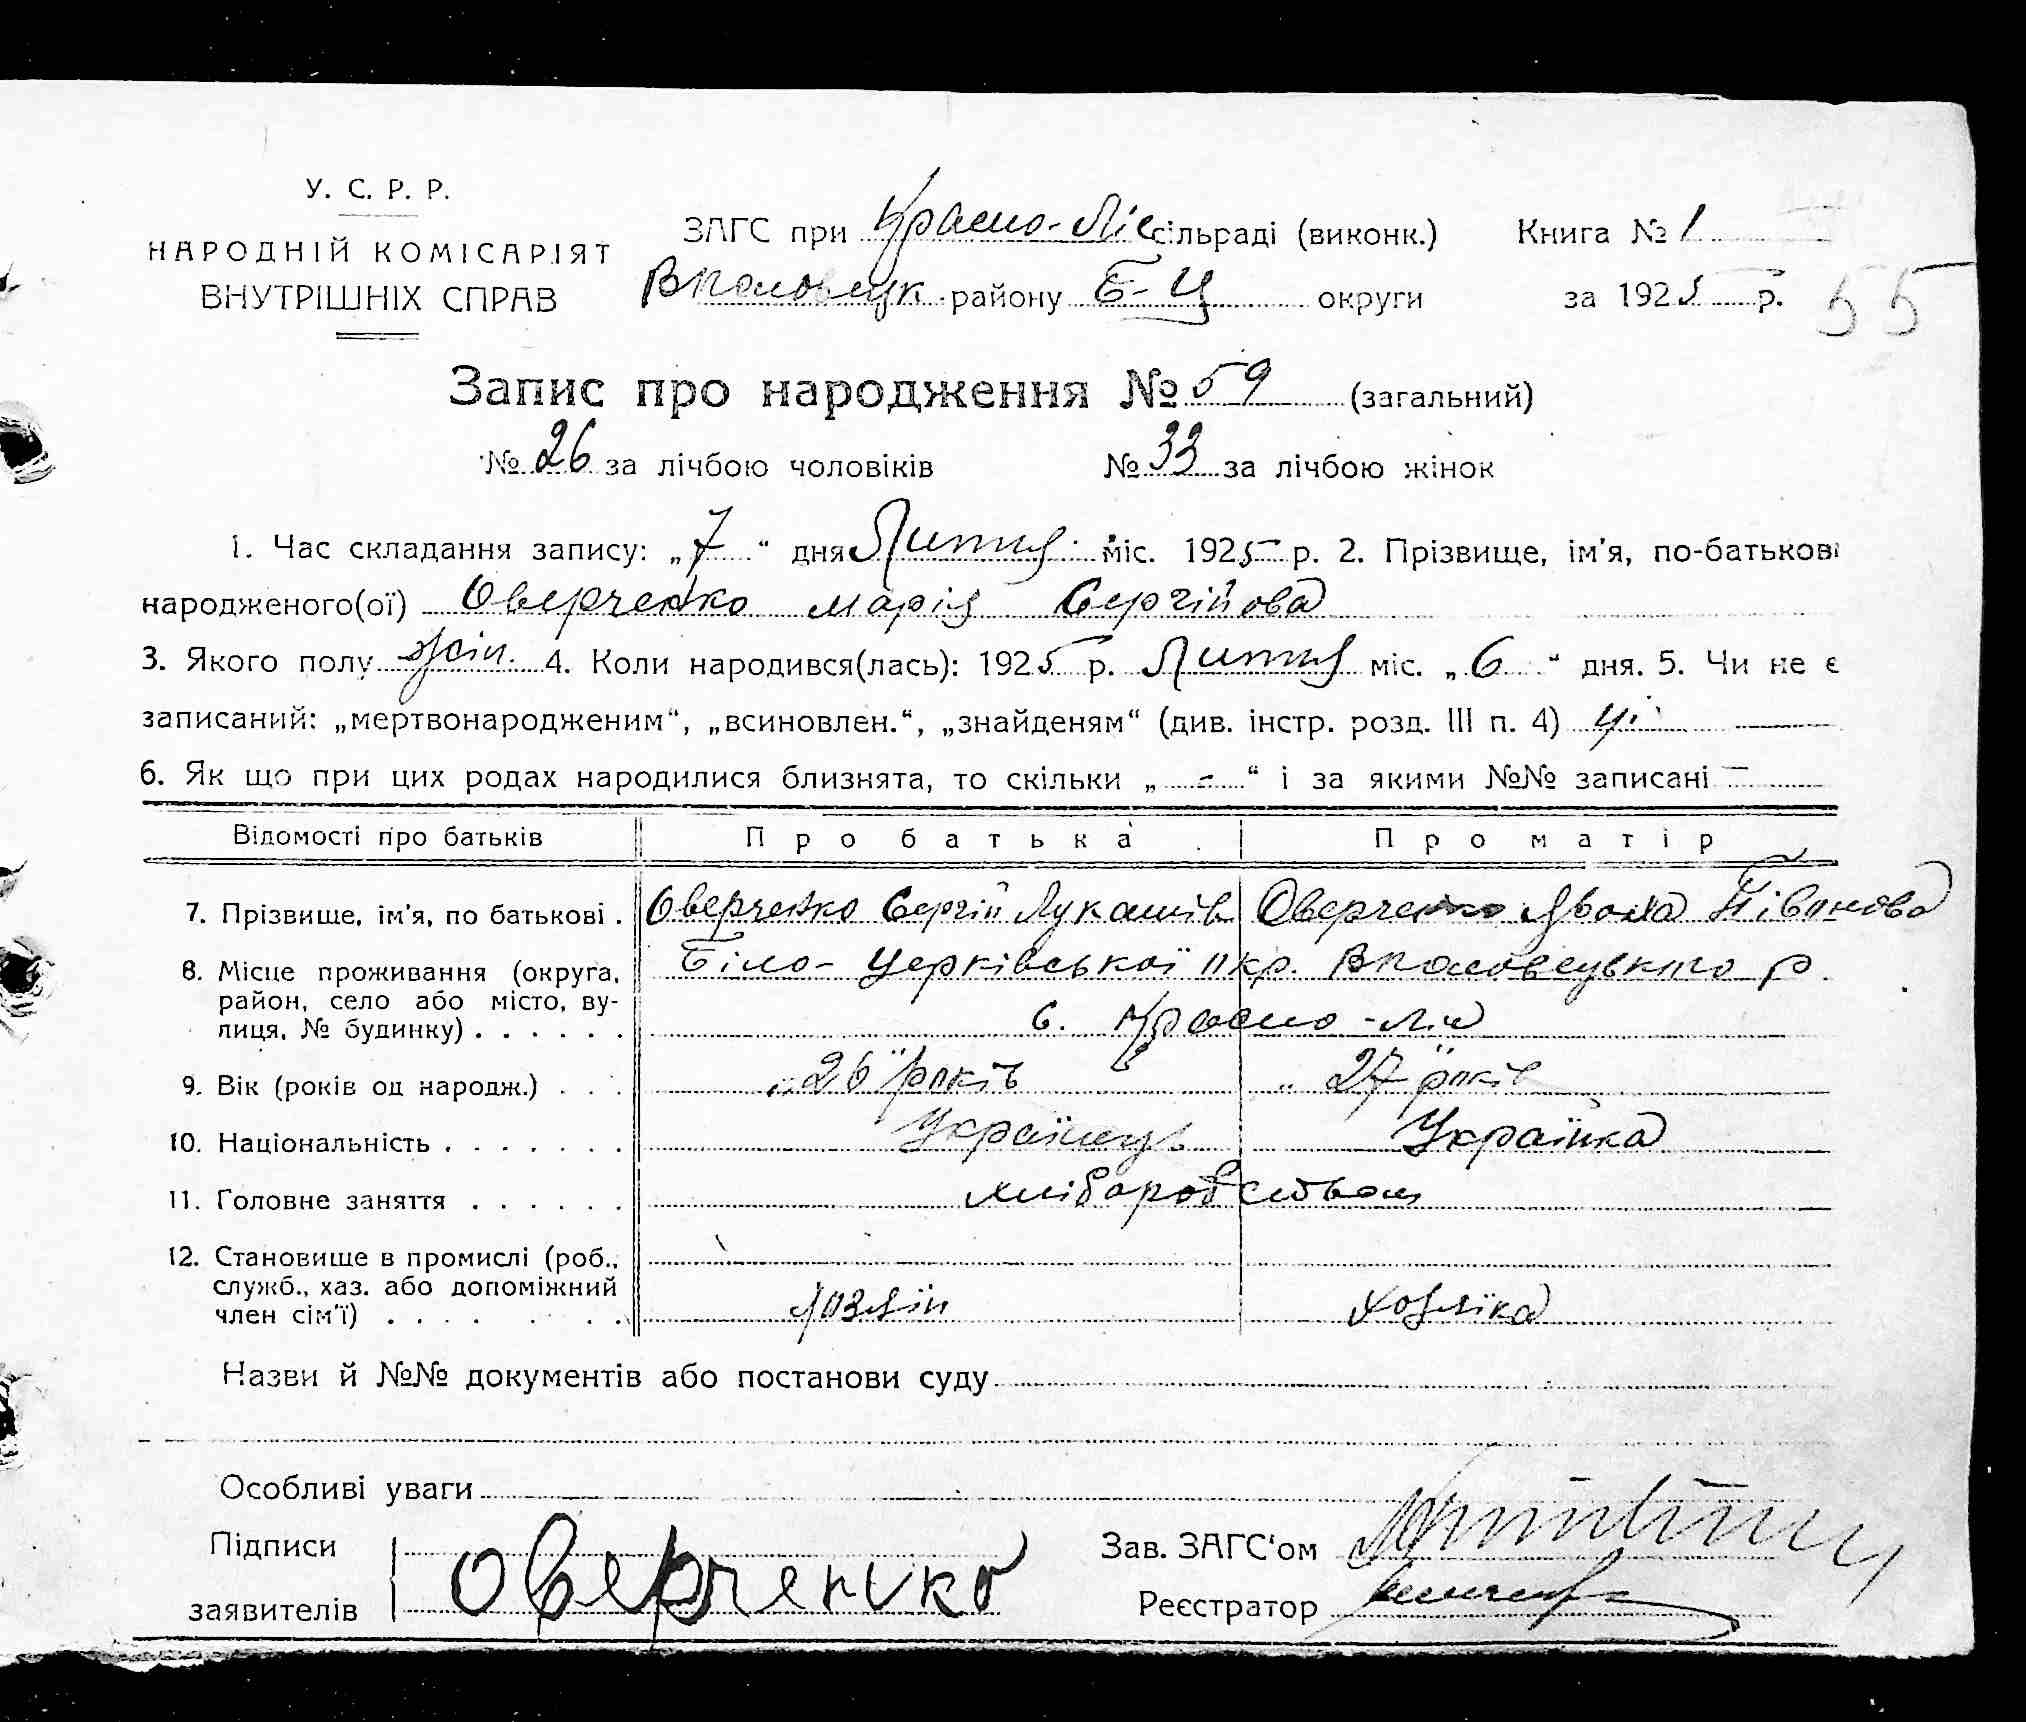 У. С. Р. Р.
НАРОДНІЙ КОМІСАРІЯТ
ВНУТРІШНІХ СПРАВ
ЗАГС при Красно-Ліс сільраді (виконк.) Книга № 1
району Б-Ц округи за 1925 р. 55
Запис про народження № 59 (загальний)
№ 26 за лічбою чоловіків № 33 за лічбою жінок
1. Час складання запису: „7“ дня Лютня міс. 1925 р. 2. Прізвище, ім'я, по-батькові
народженого(ої) Оверченко Марія Сергійова
3. Якого полу жін. 4. Коли народився(лась): 1925 р. Лютня міс. „6“ дня. 5. Чи не є
записаний: „мертвонародженим“, „всиновлен.“, „знайденям“ (див. інстр. розд. III п. 4)
6. Як що при цих родах народилися близнята, то скільки „-“ і за якими №№ записані –
Відомості про батьків Про батька Про матір
7. Прізвище, ім'я, по батькові . Оверченко Сергій Лукашів Оверченко Івонова
8. Місце проживання (округа, район, село або місто, вулиця, № будинку) . . . . . . Біло-Церківської окр. р.
с. Красно-Ліс
9. Вік (років од народж.) . . . „26“ років „27“ років
10. Національність . . . . . . . Українець Українка
11. Головне заняття . . . . . . хліборобством
12. Становище в промислі (роб., служб., хаз. або допоміжний член сім'ї) . . . . . . . хозяїн хозяїка
Назви й №№ документів або постанови суду
Особливі уваги
Підписи
заявителів Оверченко
Зав. ЗАГС'ом
Реєстратор